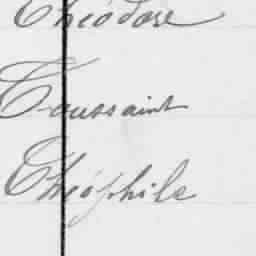 Théodore
Toussaint
Théophile